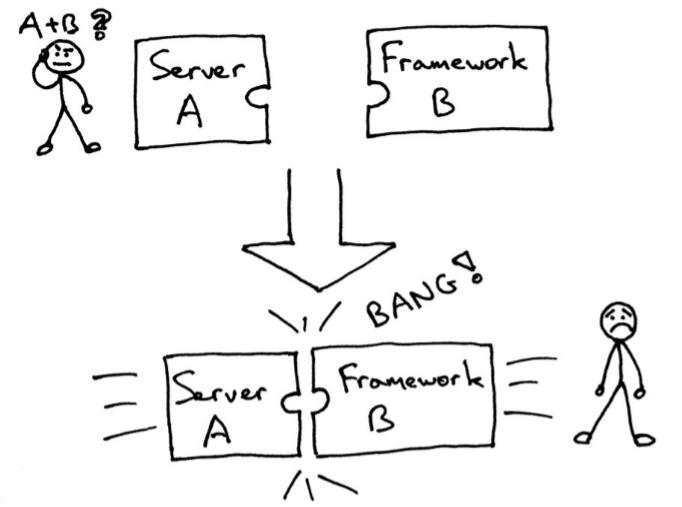 A+B?
Server
A
Framework
B
BANG!
Server
A
Framework
B